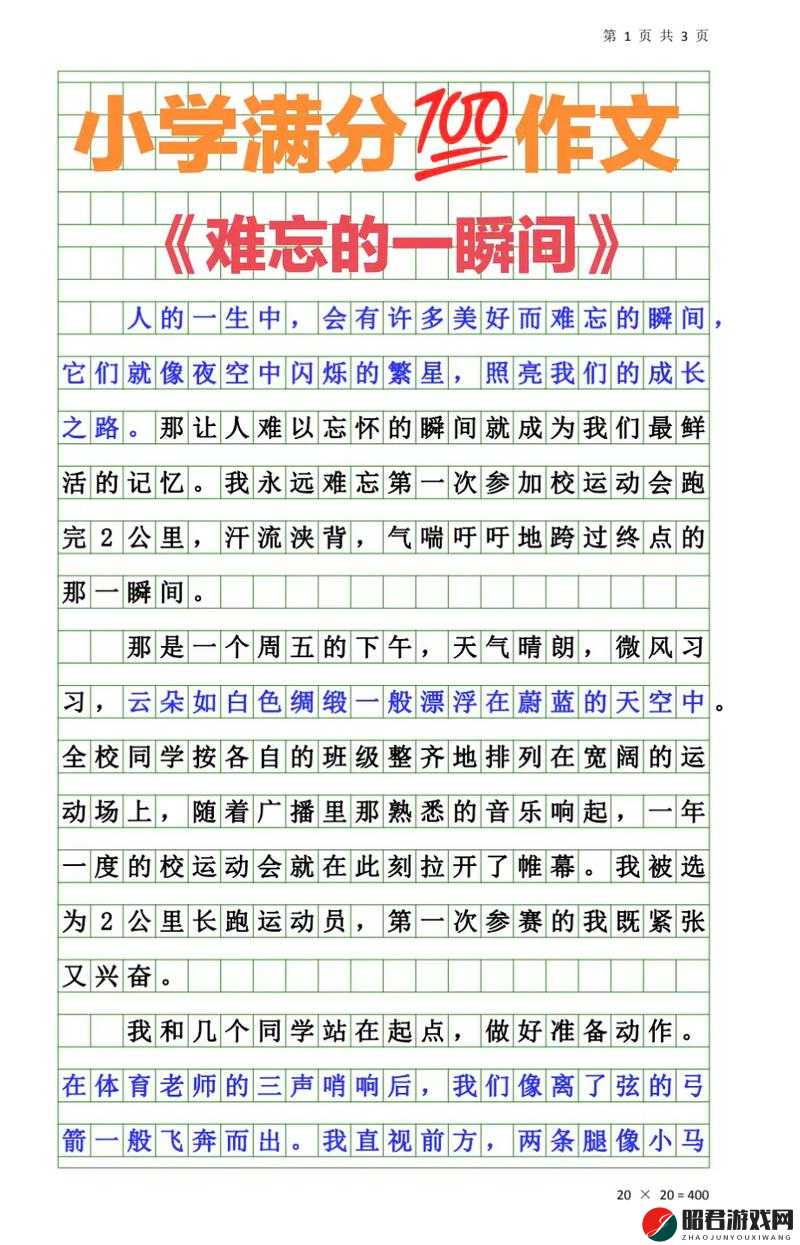 第 1 页 共 3 页
小学满分100作文
《难忘的一瞬间》
人的一生中，会有许多美好而难忘的瞬间，
它们就像夜空中闪烁的繁星，照亮我们的成长
之路。那让人难以忘怀的瞬间就成为我们最鲜
活的记忆。我永远难忘第一次参加校运动会跑
完2公里，汗流浃背，气喘吁吁地跨过终点的
那一瞬间。
那是一个周五的下午，天气晴朗，微风习
习，云朵如白色绸缎一般漂浮在蔚蓝的天空中。
全校同学按各自的班级整齐地排列在宽阔的运
动场上，随着广播里那熟悉的音乐响起，一年
一度的校运动会就在此刻拉开了帷幕。我被选
为2公里长跑运动员，第一次参赛的我既紧张
又兴奋。
我和几个同学站在起点，做好准备动作。
在体育老师的三声哨响后，我们像离了弦的弓
箭一般飞奔而出。我直视前方，两条腿像小马
20 × 20 = 400
昭君游戏网
ZHAOJUNYOUXIWANG